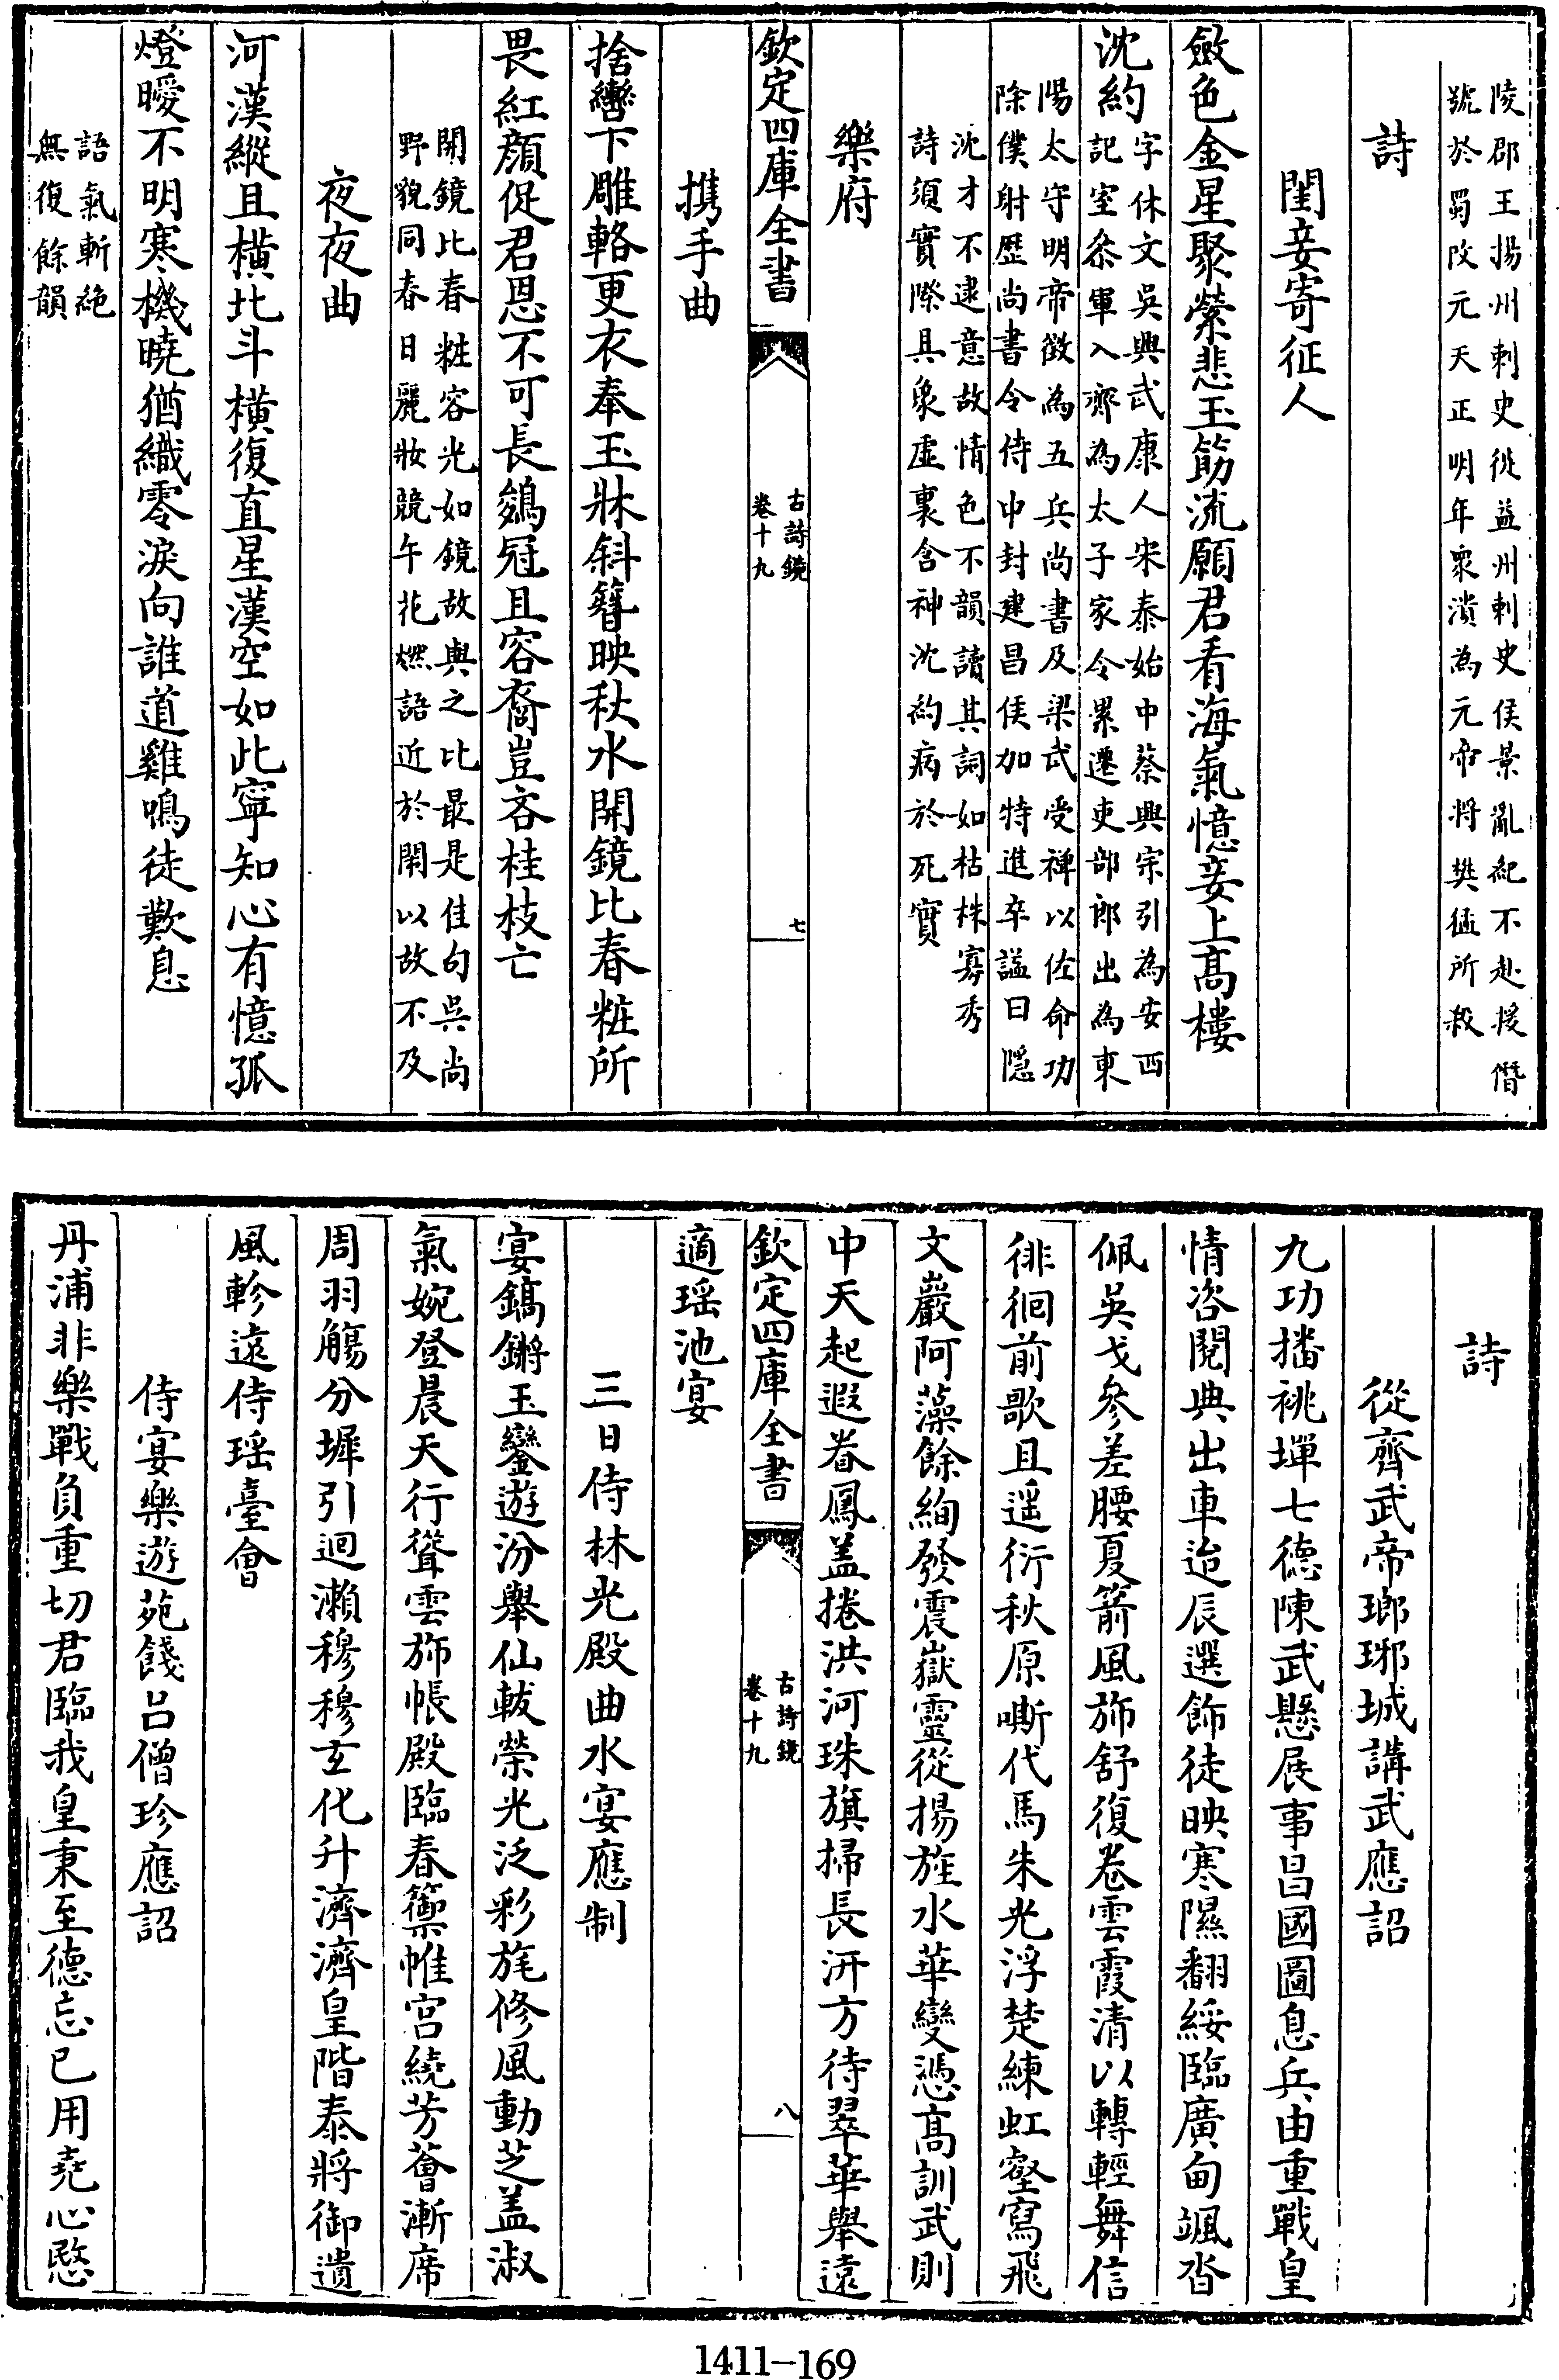 陵郡王揚州刺史徙益州刺史侯景亂紀不赴援僭
號於蜀改元天正明年衆潰為元帝將樊猛所殺
詩
閨妾寄征人
斂色金星聚縈悲玉筯流願君看海氣憶妾上髙樓
沈約字休文吳興武康人宋泰始中蔡興宗引為安西
記室叅軍入齊為太子家令累遷吏部郎出為東
陽太守明帝徵為五兵尚書及梁武受禅以佐命功
除僕射歴尚書令侍中封建昌侯加特進卒諡曰隠
沈才不逮意故情色不韻讀其詞如枯株寡秀
詩須實際具象虛裏含神沈約病於死實
樂府
欽定四庫全書
古詩鏡
卷十九
七
携手曲
捨轡下雕輅更衣奉玉牀斜簪映秋水開鏡比春粧所
畏紅顔促君恩不可長鷄冠且容裔豈吝桂枝亡
開鏡比春粧容光如鏡故與之比最是佳句吳尚
野貌同春日麗妝競午花燃語近於閙以故不及
夜夜曲
河漢縱且橫北斗橫復直星漢空如此寧知心有憶孤
燈曖不明寒機曉猶織零淚向誰道雞鳴徒歎息
語氣斬絶
無復餘韻
詩
從齊武帝瑯琊城講武應詔
九功播祧墠七德陳武懸展事昌國圖息兵由重戰皇
情咨閱典出車迨辰選飾徒映寒隰翻綏臨廣甸颯沓
佩吳戈參差腰夏箭風斾舒復卷雲霞清以轉輕舞信
徘徊前歌且遥衍秋原嘶代馬朱光浮楚練虹壑寫飛
文巖阿藻餘絢發震嶽靈從揚旌水華變憑髙訓武則
中天起遐眷鳳盖捲洪河珠旗掃長汧方待翠華舉遠
欽定四庫全書
古詩鏡
卷十九
八
適瑶池宴
三日侍林光殿曲水宴應制
宴鎬鏘玉鑾遊汾舉仙軷榮光泛彩旄修風動芝盖淑
氣婉登晨天行聳雲斾帳殿臨春籞帷宫繞芳薈漸席
周羽觴分墀引迴瀨穆穆玄化升濟濟皇階泰將御遺
風軫遠侍瑶臺會
侍宴樂遊苑餞吕僧珍應詔
丹浦非樂戰負重切君臨我皇秉至德忘己用堯心愍
1411—169